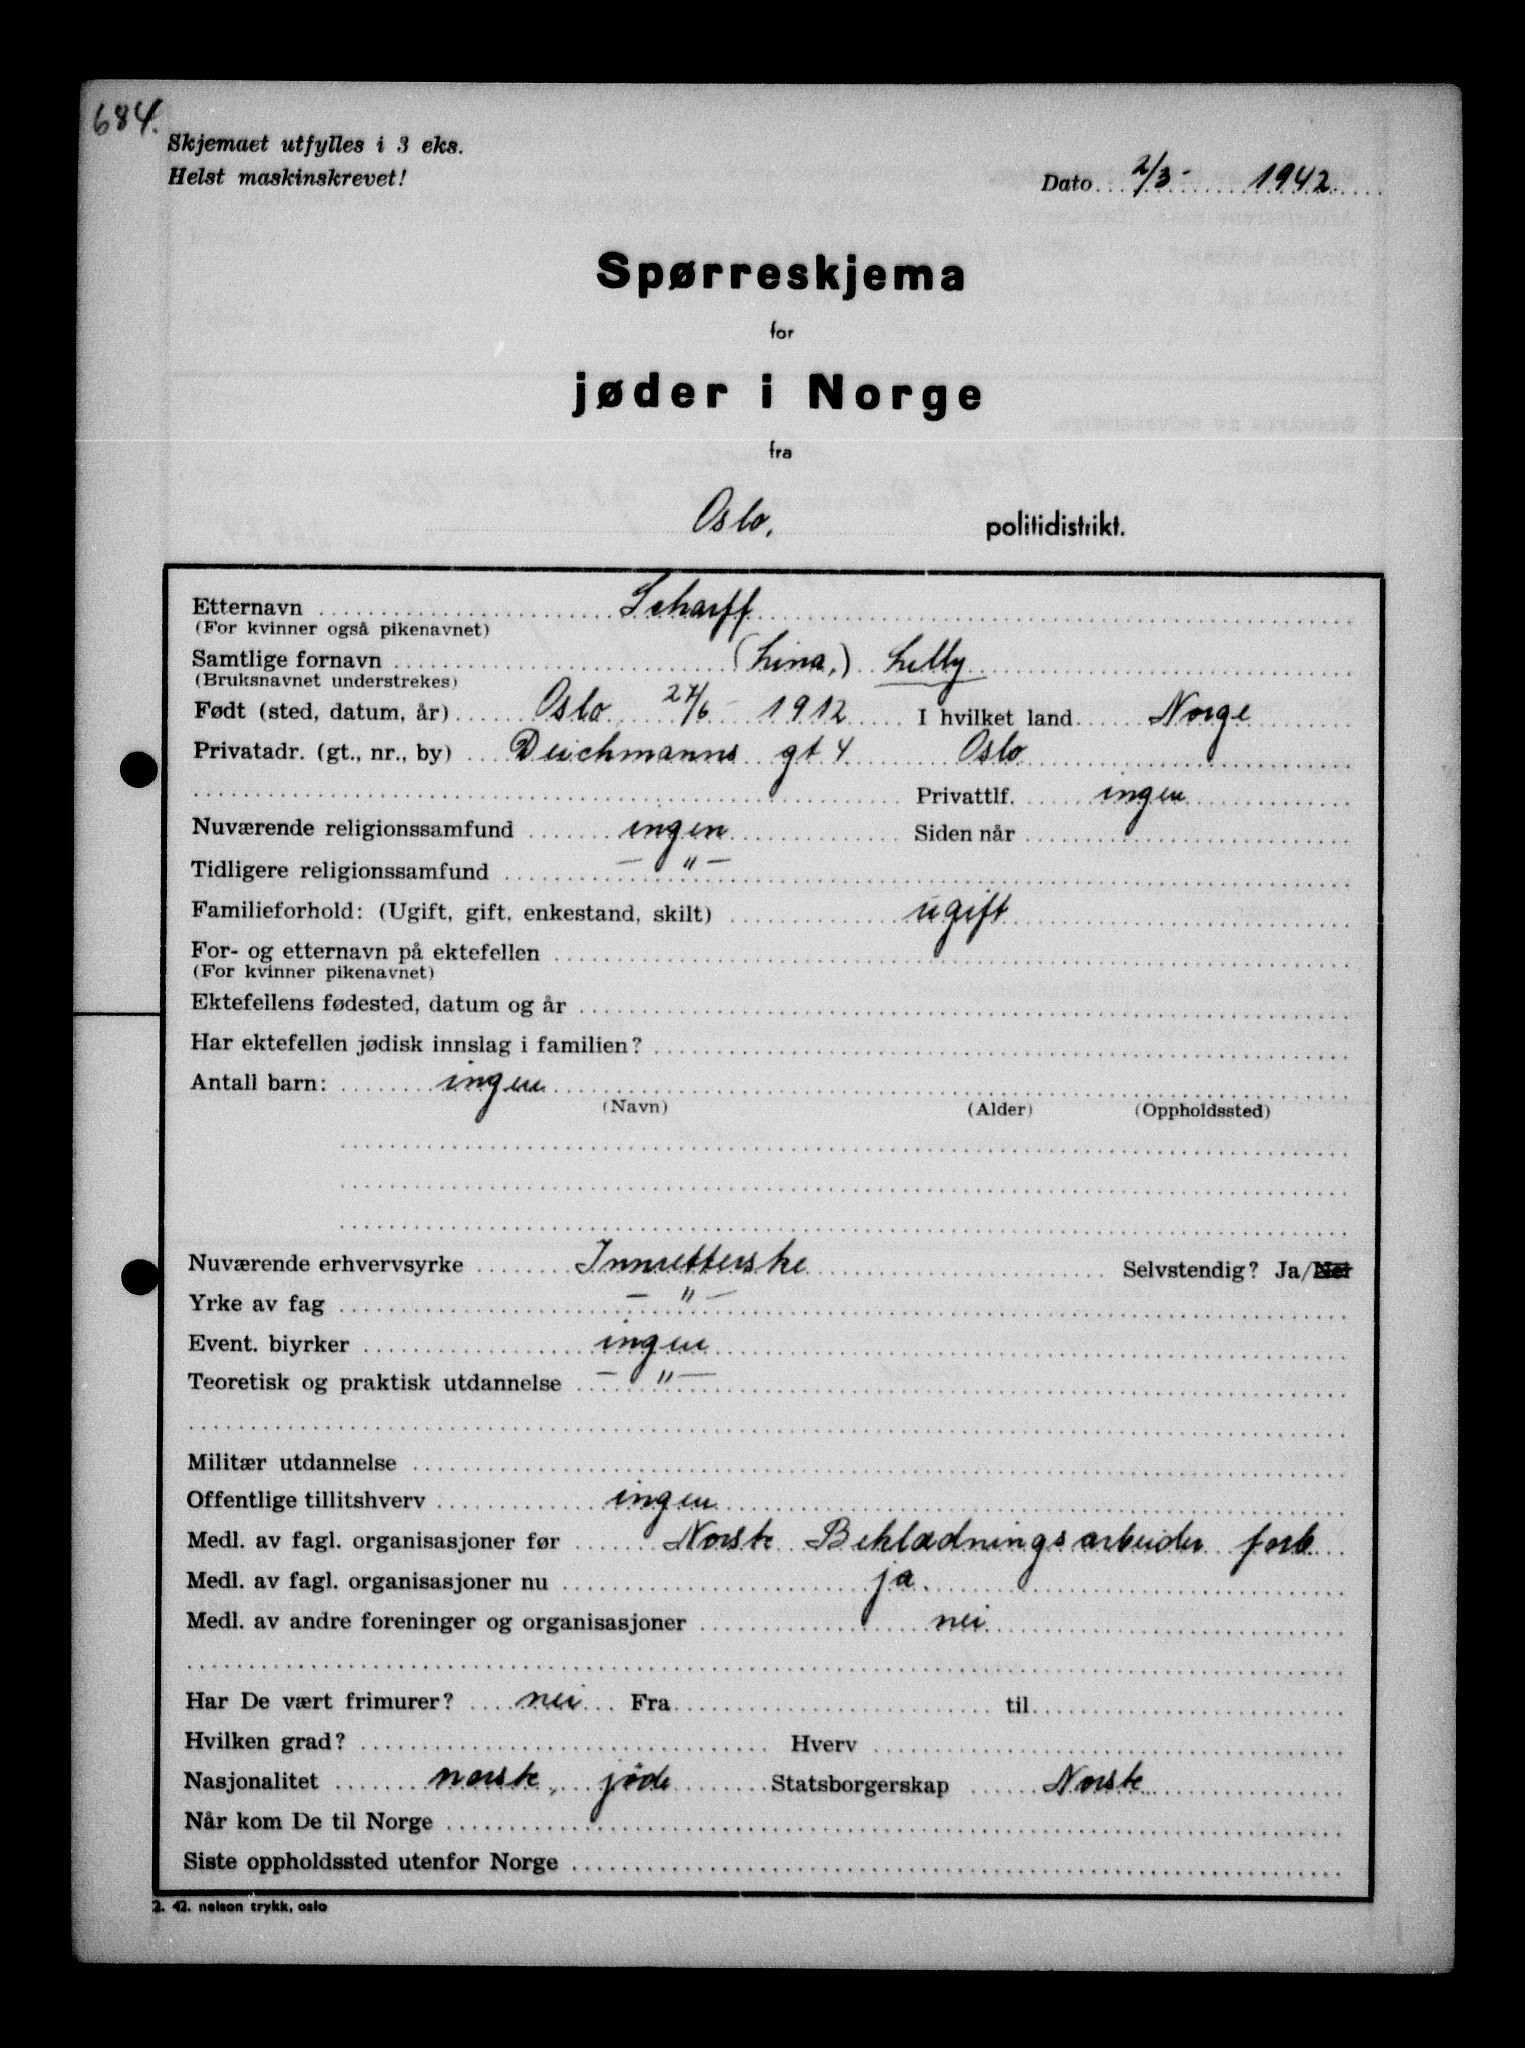 684.
Skjemaet utfylles i 3 eks.
Helst maskinskrevet!
Dato 2/3 - 1942.
Spørreskjema
for
jøder i Norge
fra
Oslo. politidistrikt.
Etternavn Scharff
(For kvinner også pikenavnet)
Samtlige fornavn (Lina.) Lilly
(Bruksnavnet understrekes)
Født (sted, datum, år) Oslo 27/6 - 1912 I hvilket land Norge
Privatadr. (gt., nr., by) Deichmanns gt 4 Oslo
Privattlf. ingen
Nuværende religionssamfund ingen Siden når
Tidligere religionssamfund — " —
Familieforhold: (Ugift, gift, enkestand, skilt) ugift
For- og etternavn på ektefellen
(For kvinner pikenavnet)
Ektefellens fødested, datum og år
Har ektefellen jødisk innslag i familien?
Antall barn: ingen
(Navn) (Alder) (Oppholdssted)
Nuværende erhvervsyrke Innretterske Selvstendig? Ja/Nei
Yrke av fag — " —
Event. biyrker ingen
Teoretisk og praktisk utdannelse — " —
Militær utdannelse
Offentlige tillitshverv ingen
Medl. av fagl. organisasjoner før Norsk Beklædningsarbeider forb.
Medl. av fagl. organisasjoner nu ja.
Medl. av andre foreninger og organisasjoner nei
Har De vært frimurer? nei Fra til
Hvilken grad? Hverv
Nasjonalitet norsk, jøde Statsborgerskap Norsk
Når kom De til Norge
Siste oppholdssted utenfor Norge
2. 42. nelson trykk, oslo